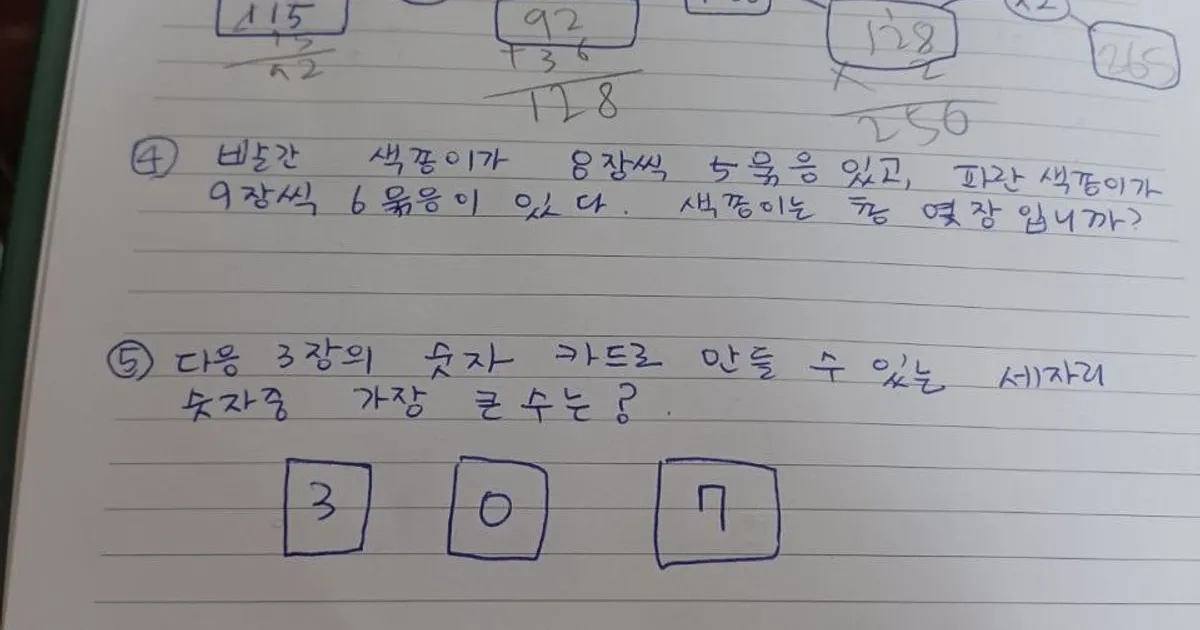 115
92
128
×2
265
+36
2
128
256
④ 빨간 색종이가 8장씩 5묶음있고, 파란색종이가
9장씩 6묶음이 있다. 색종이는 총 몇장입니까?
⑤ 다음 3장의 숫자 카드로 만들 수 있는 세자리
숫자중 가장 큰수는?
3 0 7